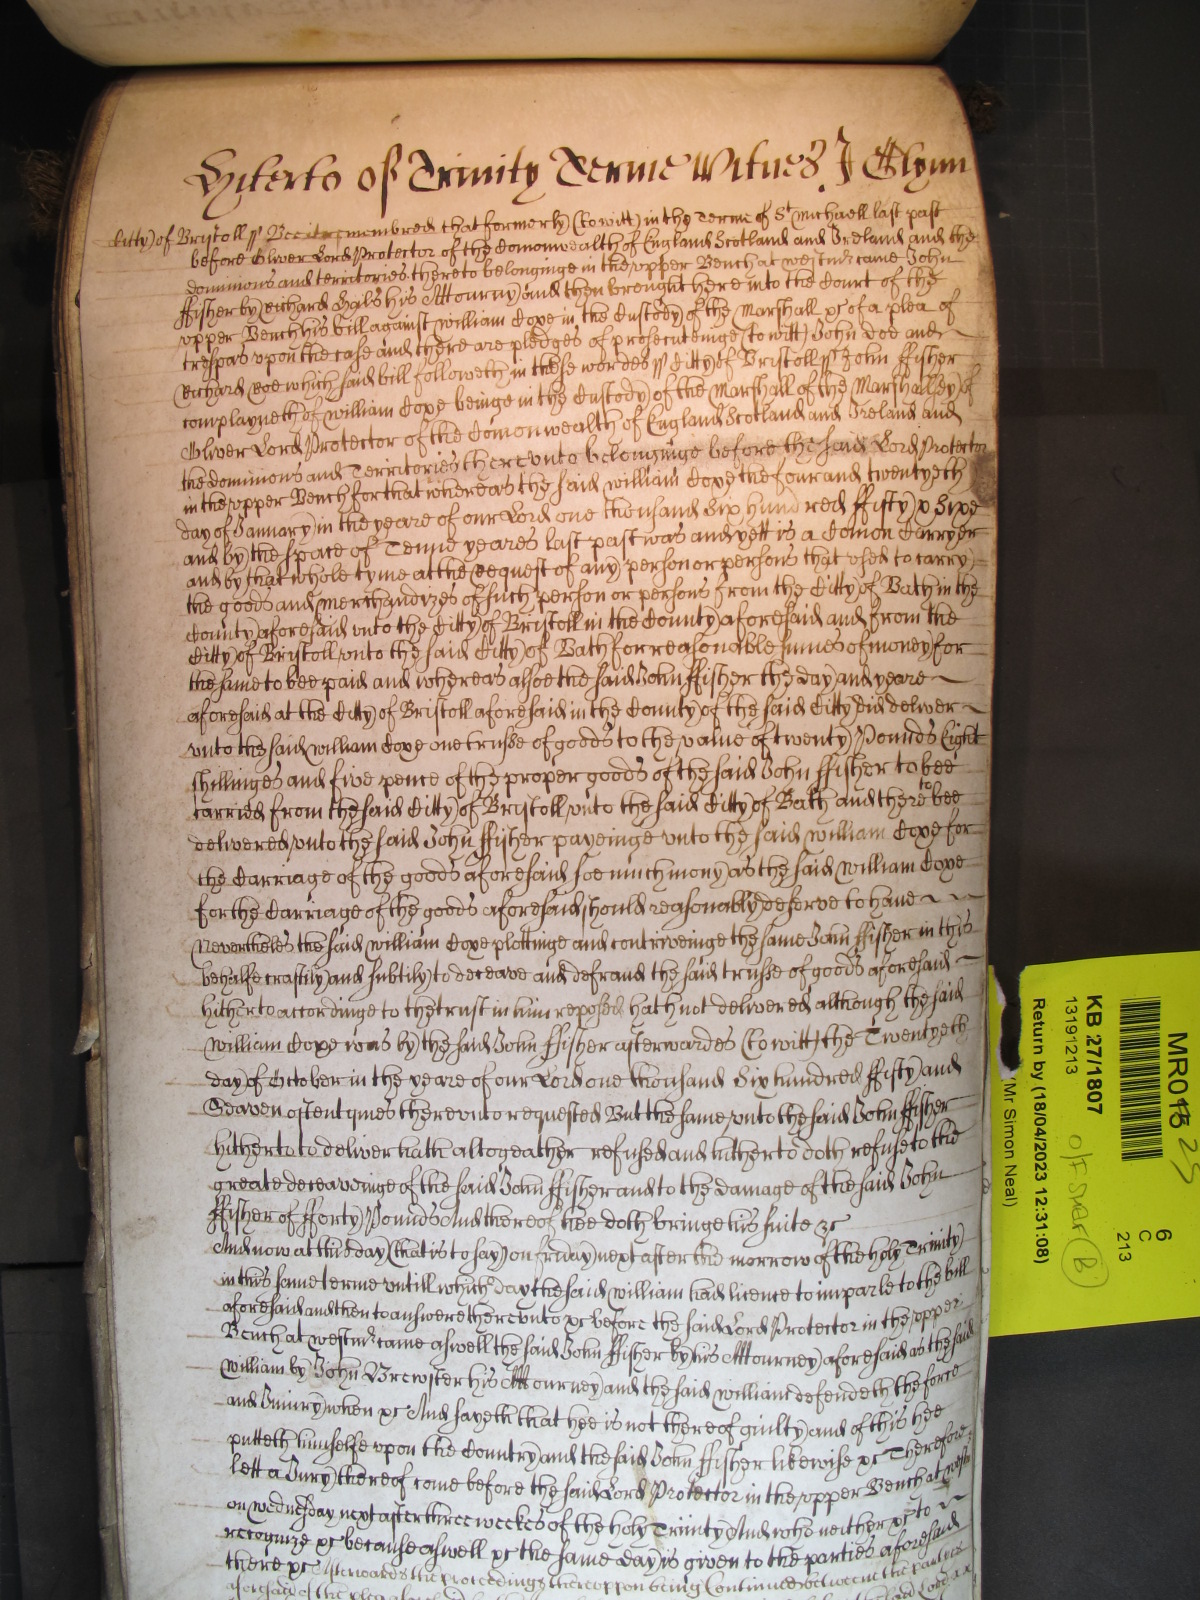 Hiterto of Trinity Terme Witnes J Glynn
Citty of Bristoll ss Bee it remembred that formerly (to witt) in the Terme of St Michaell last past
before Oliver Lord Protector of the Comonwealth of England Scotland and Ireland and the
dominions and territories thereto belonginge in the upper Bench at westmr came John
ffisher by Richard his Attourny and then brought here into the Court of the
upper Bench his bill against william Coxe in the Custody of the Marshall &c of a plea of
trespas upon the case and there are pledges of prosecuteinge (to witt) John Doe and
Richard Roe which said bill followeth in these wordes ss Citty of Bristoll ss John ffisher
complayneth of william Coxe beinge in the Custody of the Marshall of the Marshalsey of
Oliver Lord Protector of the Comonwealth of England Scotland and Ireland and
the dominions and Territories thereunto belonginge before the said Lord Protector
in the upper Bench for that whereas the said william Coxe the four and twentyeth
day of January in the yeare of our Lord one thousand Six hundred ffifty & Sixe
and by the space of Tenne yeares last past was and yett is a Comon Carryer
and by that whole tyme at the request of any person or persons that used to carry
the goods and merchandizes of such person or persons from the Citty of Bath in the
County aforesaid unto the Citty of Bristoll in the County aforesaid and from the
Citty of Bristoll unto the said Citty of Bath for reasonable sumes of money for
the same to bee paid and whereas alsoe the said John ffisher the day and yeare
aforesaid at the Citty of Bristoll aforesaid in the County of the said Citty did deliver
unto the said william Coxe one trusse of goods to the value of twenty Pounds Eight
shillinges and five pence of the proper goods of the said John ffisher to bee
carried from the said Citty of Bristoll unto the said Citty of Bath and there to bee
delivered unto the said John ffisher payeinge unto the said william Coxe for
the Carriage of the goods aforesaid soe much mony as the said william Coxe
for the Carriage of the goods aforesaid should reasonably deserve to have
Nevertheles the said william Coxe plottinge and contriveinge the same John ffisher in this
behalfe craftily and subtily to deceave and defraud the said trusse of goods aforesaid
hitherto accordinge to the trust in him reposed hath not delivered although the said
william Coxe was by the said John ffisher afterwardes (to witt) the Twentyeth
day of October in the yeare of our Lord one thousand Six hundred ffifty and
Seaven oftentymes thereunto requested But the same unto the said John ffisher
hitherto to deliver hath altogeather refused and hitherto doth refuse to the
greate deceaveinge of the said John ffisher and to the damage of the said John
ffisher of fforty Pounds And thereof hee doth bringe his suite &c
And now at this day (that is to say) on friday next after the morrow of the holy Trinity
in this same terme untill which day the said william had licence to imparle to the bill
aforesaid and then to answere thereunto &c before the said Lord Protector in the upper
Bench at westmr came aswell the said John ffisher by his Attourney aforesaid as the said
william by John Brewster his Attourney and the said william defendeth the force
and Iniury when &c And sayeth that hee is not thereof guilty and of this hee
putteth himselfe upon the Country and the said John ffisher likewise &c Therefore
lett a Jury thereof come before the said Lord Protector in the upper Bench at westmr
on wednesday next after three weekes of the holy Trinity And who neither &c to
recognize &c because aswell &c the same day is given to the parties aforesaid
there &c Afterwards the proceedings thereuppon being Continued betweene the parties
aforesaid of the plea
MR013 25
6
C
213
KB 27/1807
13191213
Return by (18/04/2023 12:31:08)
(Mr Simon Neal)
B